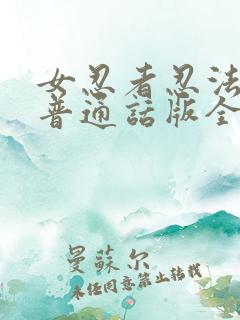 女忍者忍法
普通話版全
曼蘇尔
未任同意禁止转载